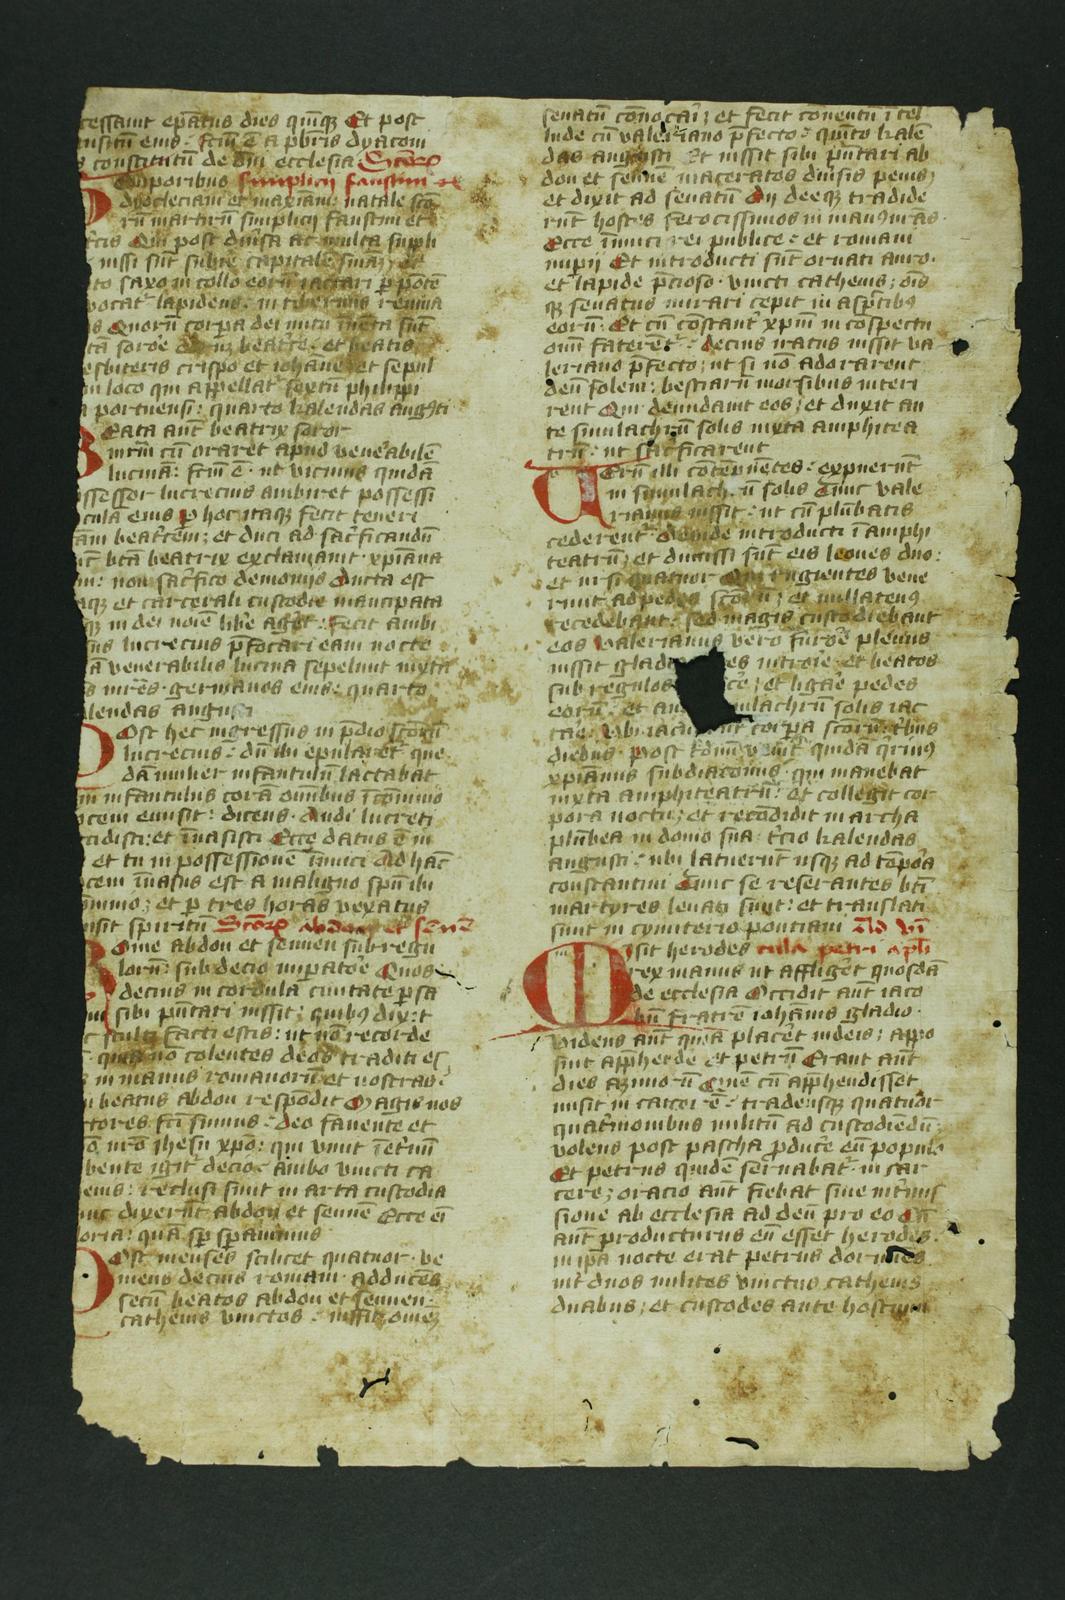 cessauit ep̄atus dies quīqꝫ Et post
ansitū eius : fc̄m ē a p̄bris dyacoīn
s constitutū de oī ecclesia Sc̄oꝝ
Temporibus Simplicij faustini et
dyocleciani et maxiani: natale sc̄o
rū martirū simplicij faustini et
Qui post diu̾sa ac multa suppli
iussi sūt subire capitale
to saxo in collo eorū iactari p̄ pōtē
vocat᷑ lapideus : in tiberinis reuma
s Quorū corpa dei nutu īuēta sūt
sorore et beatis
esbiteris crispo et iohāne et sepul
in loco qui appellat᷑ sextū philippi
portuensi : quarto kalendas augusti
Beata aūt beatrix soror
mr̄m cū oraret apud venerabilē
lucinā : fc̄m ē · ut vicinus quidā
ssessor lucrecius ambiret possessi
culā eius p̱ hoc itaqꝫ fecit teneri
ām beatrēm ; et duci ad sac̾ficandū
bt̄a beatrix exclamauit · xp̄iana
: non sac̾fico demonijs ducta est
qꝫ et carcerali custodie mancipata
qꝫ in dei noīe libere ageret : fecit ambi
lucrecius p̄focari eam nocte
ā venerabilis lucina sepeliuit iuxta
s · germanos eius : quarto
lendas augusti
Post hec ingressus in p̄dio sc̄orū
lucrecius : dū ibi epularet᷑ que
dā mulier infantulū lactabat
infantulus corā oīnibus ī cōuiuio
cem emisit : dicens · Audi lucreti
cidisti : et īuasisti Ecce datus ē in
et tu in possessione inimici Ad hāc
cem īuasus est a maligno spū ibi
; et p̱ tres horas vexatus
sit spiritū Sc̄oꝝ abdon et sennē
Rome abdon et sennen subregu
lorū : sub decio imp̱atore Quos
decius in cordula ciuitate p̱sa
sibi p̄ntari iussit ; quibꝰ dixit
stulti facti estis : ut nō recorde
quia nō colentes deos traditi es
in manus romanorū et nostras
beatus abdon respōdit Magis nos
ctores fc̄i sumus : deo fauente et
nr̄o ihesu xp̄o : qui viuit ī et̾nū
bente igit᷑ decio · ambo vincti ca
enis : reclusi sunt in arta custodia
dixerūt abdon et sennē Ecce ē
oria : quā sp̄ sp̱auimus
Post menses scilicet quatuor · ve
niens decius romam · adducēs
secū beatos abdon et sennen
cathenis vinctos : iussit omēꝫ
senatū cōuocari ; et fecit conentū ī tel
lude cū valeriano p̄fecto : quīto kalē
das augusti Et iussit sibi p̄ntari ab
don et senne maceratos diuisis penis ;
et dixit ad senatū Dij deeqꝫ tradide
runt hostes ferocissimos in manꝰ nr̄as ·
Ecce īmici rei publice : et romani
imp̱ij Et introducti sūt ornati auro
et lapide p̄cioso · vincti cathenis ; oīs
qꝫ senatus mirari cepit in asp̄tibꝰ
eorū · Et cū cōstant᷑ xp̄m in cōspectu
oīm faterēt᷑ : decius iratus iussit va
leriano p̄fecto ; ut si nō adorarent
deū solem : bestiarū morsibus interi
rent Qui denudauit eos ; et duxit an
te simulachrū solis iuxta amphitea
trū : ut sac̾ficarent
Uerū illi cōtēpnētes : expuerūt
in simulachrū solis Tunc vale
rianus iussit : ut cū plūbatis
cederent᷑ · deinde introducti ī amphi
teatrū ; et dimissi sūt eis leones duo :
et vrsi quatuor Qui rugientes vene
runt ad pedes sc̄orū ; et nullatenꝰ
recedebant : sed magis custodiebant
eos valerianus vero furore plenus
iussit gladi es intrare et beatos
sub regulos ; et ligare pedes
eorū · et an ulachrū solis iac
tare · Vbi iacu nt corpa sc̄orū t̾bus
diebus · post quidā qrinꝰ
xp̄ianus subdiaconus · qui manebat
iuxta amphiteatrū : et collegit cor
pora noctu ; et recōdidit in archa
plūbea in domo sua : t̾cio kalendas
augusti : ubi latuerūt usqꝫ ad tēpora
constantini Tunc se reserantes bt̄i
martyres leuati sunt : et translati
sunt in cymiterio pontiani Ad vī
Misit herodes cula petri ap̄li
rex manus ut affliget quosdā
de ecclesia Occidit aūt iaco
bū fratrē iohānis gladio ·
Videns aūt quia placeret iudeis ; appo
suit app̄hēdere et petrū Erant aūt
dies azimorū Quē cū app̄hendisset
misit in carcerē : tradensqꝫ quatuor
quat̾nionibus militū ad custodiēdū ·
volens post pascha p̱ducere eū populo
Et petrus quidē seruabat᷑ in car
cere ; oracio aūt fiebat sine int̾mis
sione ab ecclesia ad deū pro eo Cū
aūt producturus eū esset herodes ·
in ip̄a nocte erat petrus dormiēs
int̾ duos milites vinctus cathenis
duabus ; et custodes ante hostium